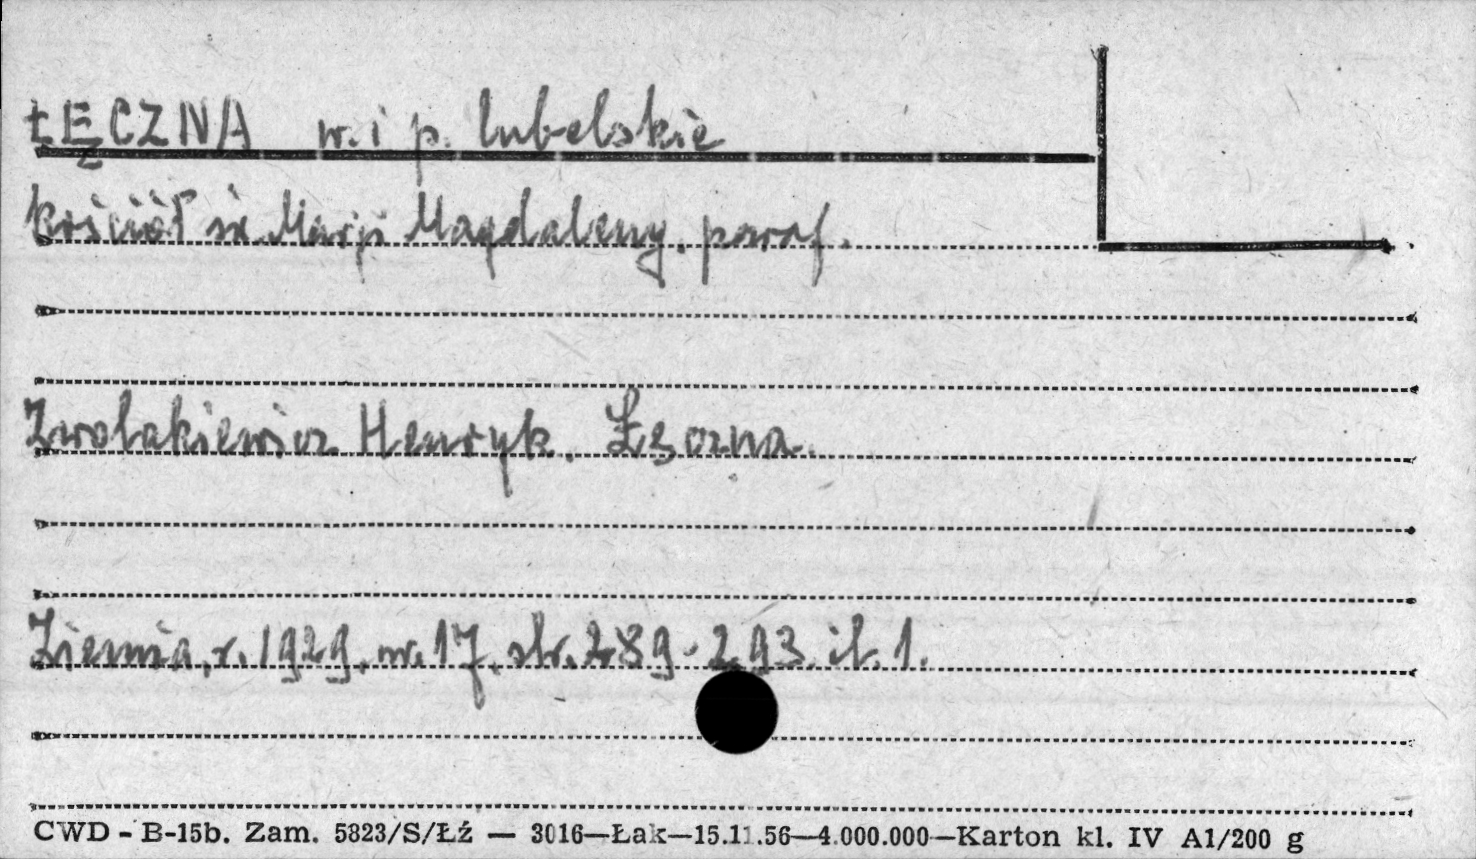 ŁĘCZNA w. i p. lubelskie
kościół św. Marji Magdaleny. paraf.
Zwolakiewicz Henryk. Łęczna.
Ziemia, r. 1929, nr. 17, str. 289-293. il. 1.
CWD - B-15b. Zam. 5823/S/Łź — 3016—Łak—15.11.56—4.000.000—Karton kl. IV A1/200 g